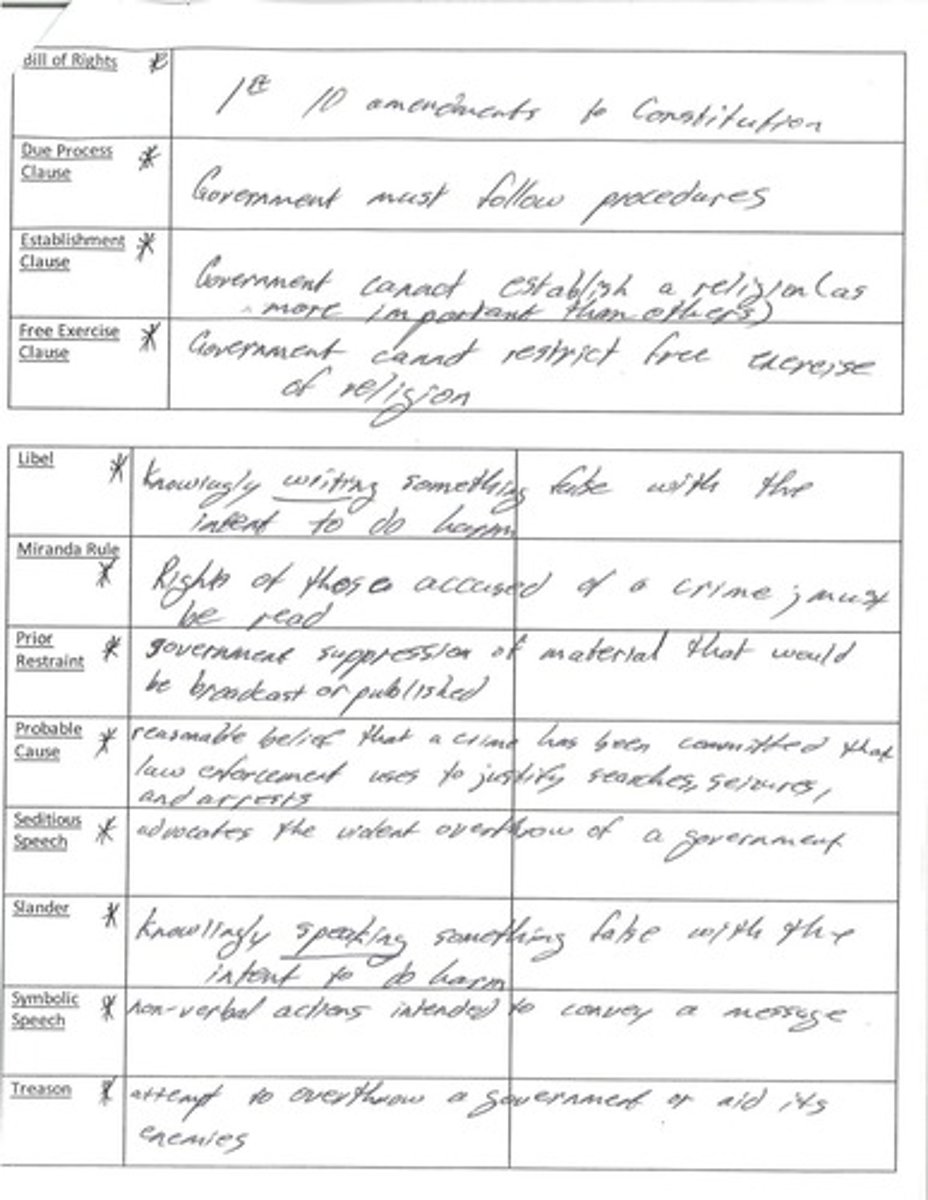 Bill of Rights *
1st 10 amendments to Constitution
Due Process *
Clause
Government must follow procedures
Establishment *
Clause
Government cannot establish a religion (as
more important than others)
Free Exercise *
Clause
Government cannot restrict free exercise
of religion
Libel *
Knowingly writing something false with the
intent to do harm
Miranda Rule
*
Rights of those accused of a crime; must
be read
Prior *
Restraint
government suppression of material that would
be broadcast or published
Probable *
Cause
reasonable belief that a crime has been committed that
law enforcement uses to justify searches, seizures,
and arrests
Seditious *
Speech
advocates the violent overthrow of a government
Slander *
Knowlingly speaking something false with the
intent to do harm
Symbolic *
Speech
non-verbal actions intended to convey a message
Treason *
attempt to overthrow a government or aid its
enemies